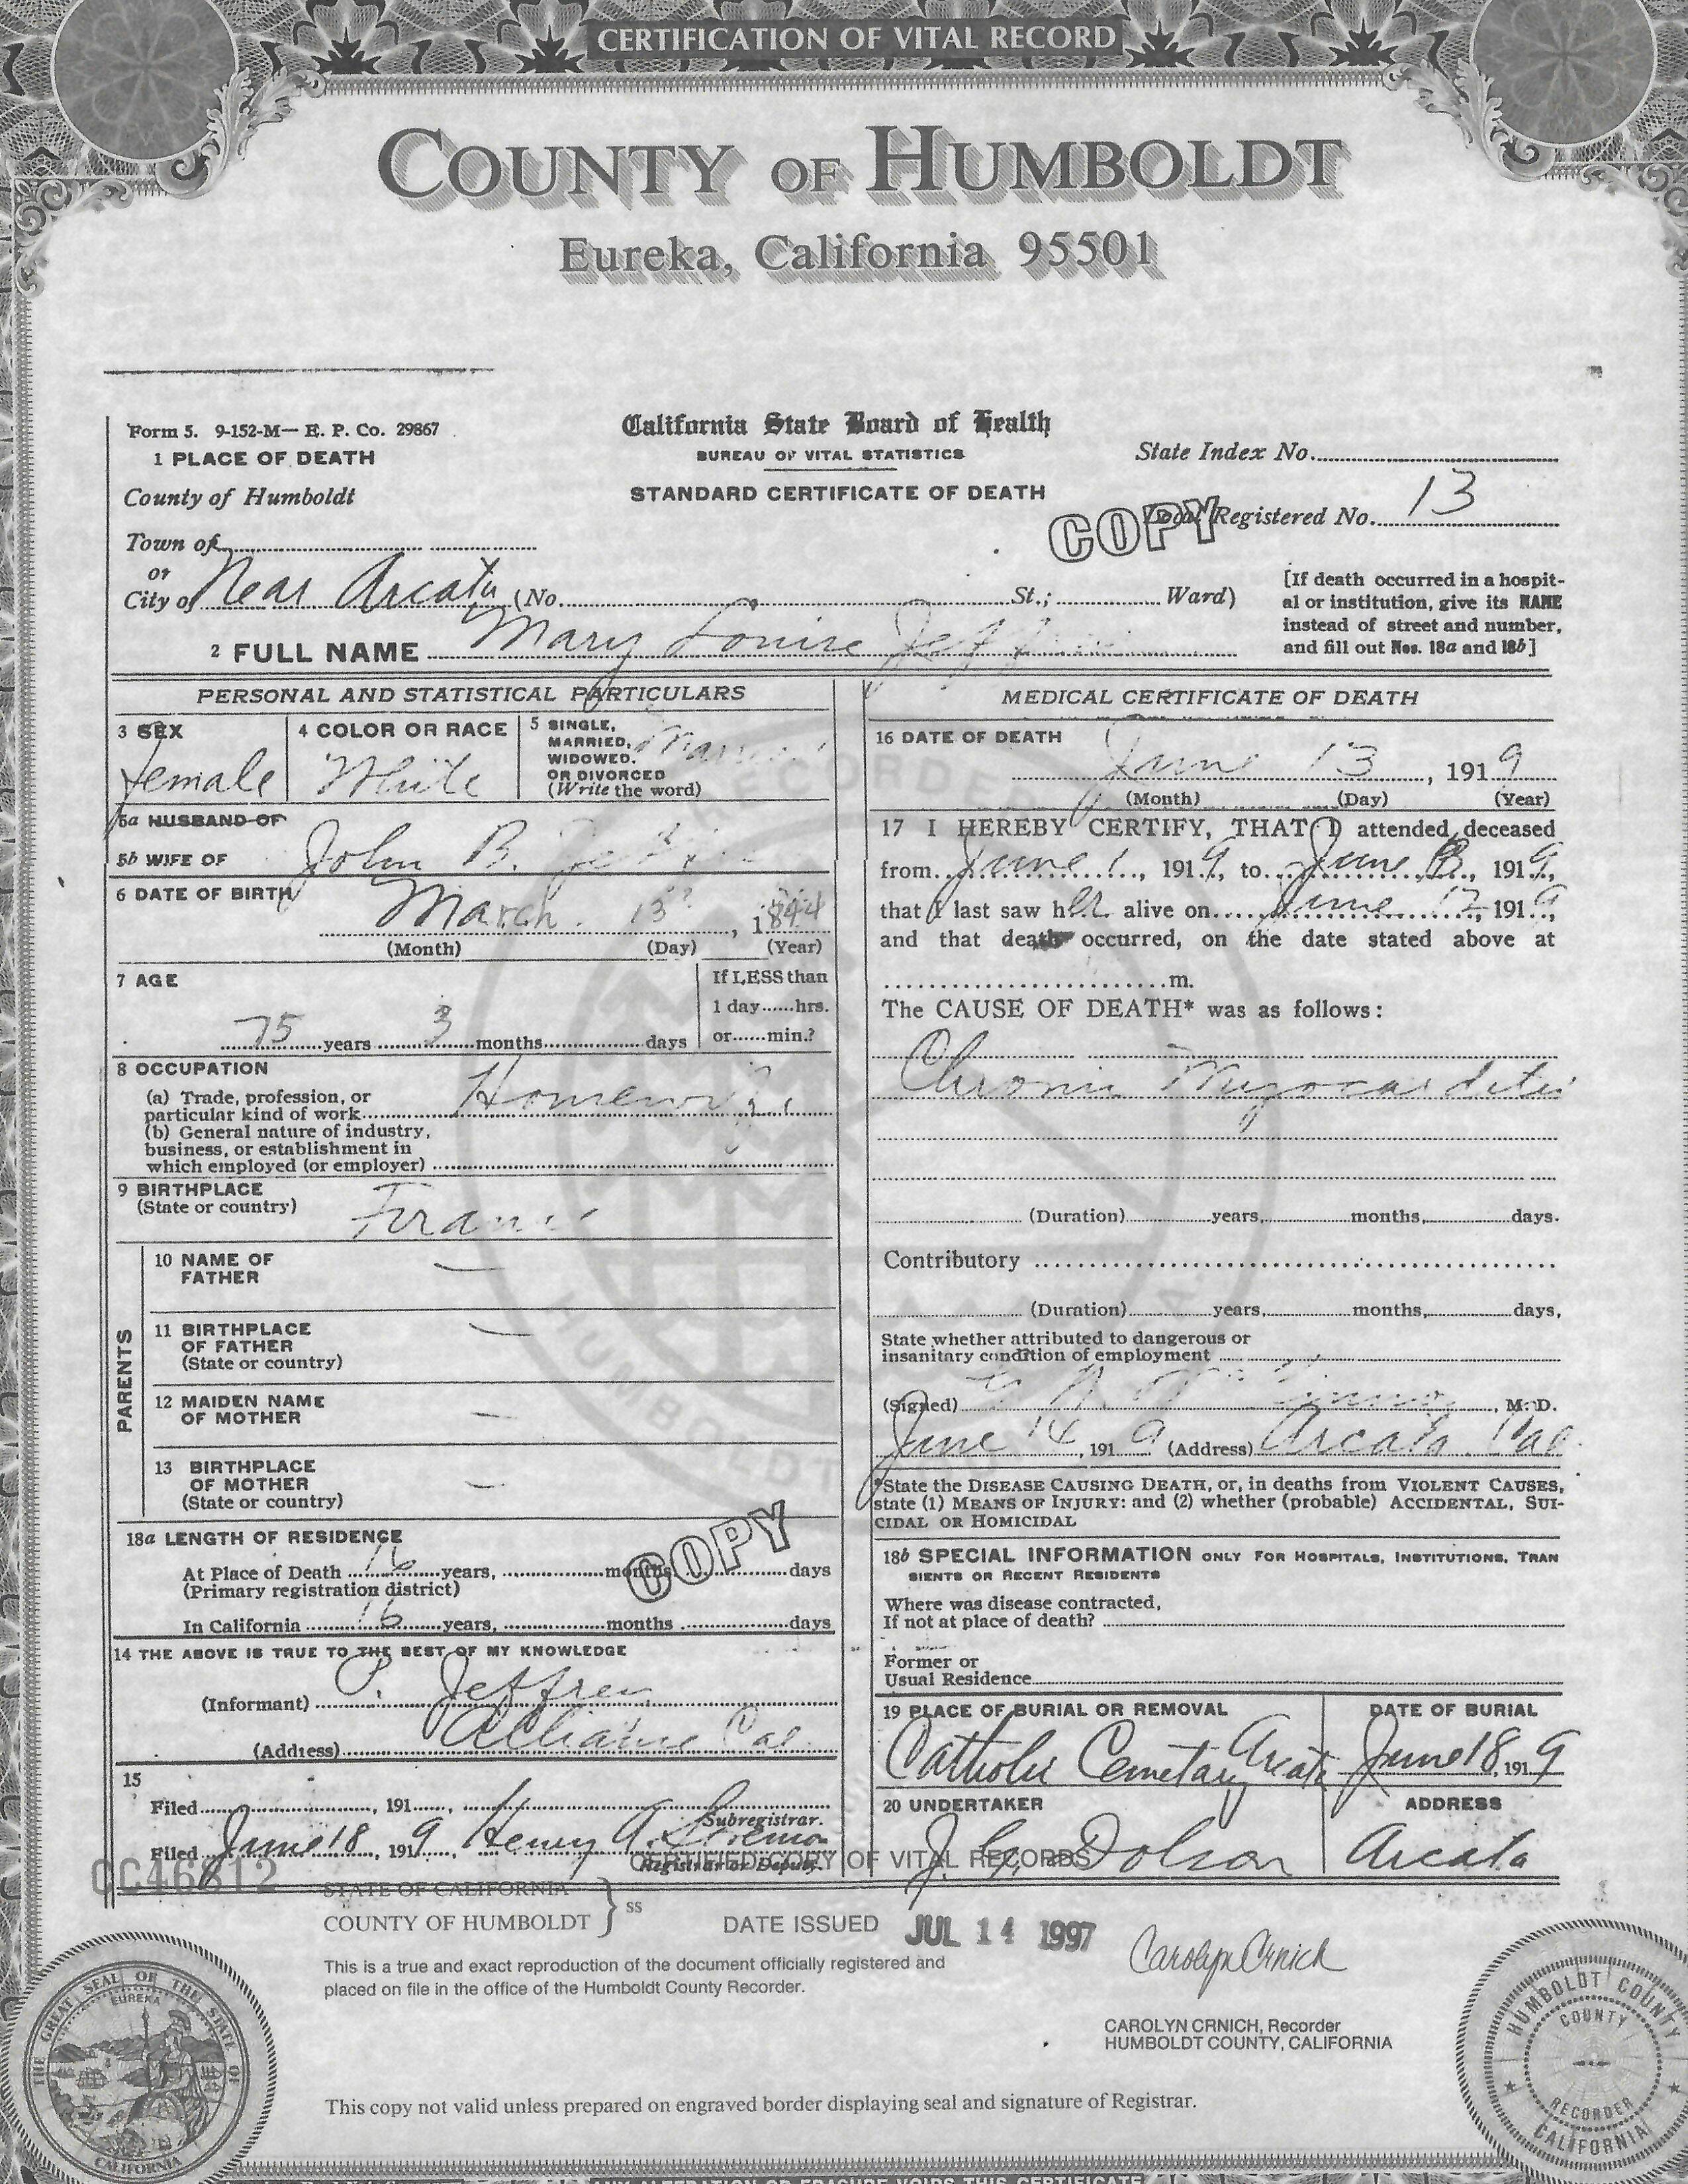 CERTIFICATION OF VITAL RECORD
COUNTY OF HUMBOLDT
Eureka, California 95501
Form 5. 9-152-M— E. P. Co. 29867
California State Board of Health
BUREAU OF VITAL STATISTICS
STANDARD CERTIFICATE OF DEATH
1 PLACE OF DEATH
County of Humboldt
State Index No.
COPY
Local Registered No. 13
Town of
or
City of Near Arcata (No. St.; Ward)
[If death occurred in a hospit-
al or institution, give its NAME
instead of street and number,
and fill out Nos. 18a and 18b]
2 FULL NAME Mary Louise
PERSONAL AND STATISTICAL PARTICULARS
3 SEX
female
4 COLOR OR RACE
White
5 SINGLE,
MARRIED,
WIDOWED.
OR DIVORCED
(Write the word)
Married
5a HUSBAND OF
5b WIFE OF John B.
6 DATE OF BIRTH
March 13, 1844
(Month) (Day) (Year)
7 AGE
75 years 3 months days
If LESS than
1 day hrs.
or min.?
8 OCCUPATION
(a) Trade, profession, or
particular kind of work
(b) General nature of industry,
business, or establishment in
which employed (or employer)
9 BIRTHPLACE
(State or country)
France
PARENTS
10 NAME OF
FATHER —
11 BIRTHPLACE
OF FATHER
(State or country) —
12 MAIDEN NAME
OF MOTHER —
13 BIRTHPLACE
OF MOTHER
(State or country) —
18a LENGTH OF RESIDENCE
At Place of Death 16 years, months days
(Primary registration district)
COPY
In California 16 years, months days
14 THE ABOVE IS TRUE TO THE BEST OF MY KNOWLEDGE
(Informant) P. Jeffrey
(Address) Alliance Cal
15
Filed , 191 ,
Subregistrar.
Filed June 18, 1919, Henry A.
Registrar or Deputy.
MEDICAL CERTIFICATE OF DEATH
16 DATE OF DEATH
June 13, 1919
(Month) (Day) (Year)
17 I HEREBY CERTIFY, THAT I attended deceased
from June 1, 1919, to June 13, 1919,
that I last saw her alive on June 12, 1919,
and that death occurred, on the date stated above at
m.
The CAUSE OF DEATH* was as follows:
Chronic Myocarditis
(Duration) years, months, days.
Contributory
(Duration) years, months, days,
State whether attributed to dangerous or
insanitary condition of employment
(Signed) , M. D.
June 14, 1919 (Address) Arcata Cal
*State the DISEASE CAUSING DEATH, or, in deaths from VIOLENT CAUSES,
state (1) MEANS OF INJURY: and (2) whether (probable) ACCIDENTAL, SUI-
CIDAL OR HOMICIDAL
18b SPECIAL INFORMATION ONLY FOR HOSPITALS, INSTITUTIONS, TRAN
SIENTS OR RECENT RESIDENTS
Where was disease contracted,
If not at place of death?
Former or
Usual Residence
19 PLACE OF BURIAL OR REMOVAL
Catholic Cemetary Arcata
DATE OF BURIAL
June 18, 1919
20 UNDERTAKER
ADDRESS
Arcata
CC46812
CERTIFIED COPY OF VITAL RECORDS
STATE OF CALIFORNIA
COUNTY OF HUMBOLDT } ss
DATE ISSUED JUL 14 1997
This is a true and exact reproduction of the document officially registered and
placed on file in the office of the Humboldt County Recorder.
Carolyn Crnich
CAROLYN CRNICH, Recorder
HUMBOLDT COUNTY, CALIFORNIA
This copy not valid unless prepared on engraved border displaying seal and signature of Registrar.
THE GREAT SEAL OF THE STATE OF CALIFORNIA
EUREKA
HUMBOLDT COUNTY
COUNTY
RECORDER
CALIFORNIA
ANY ALTERATION OR ERASURE VOIDS THIS CERTIFICATE